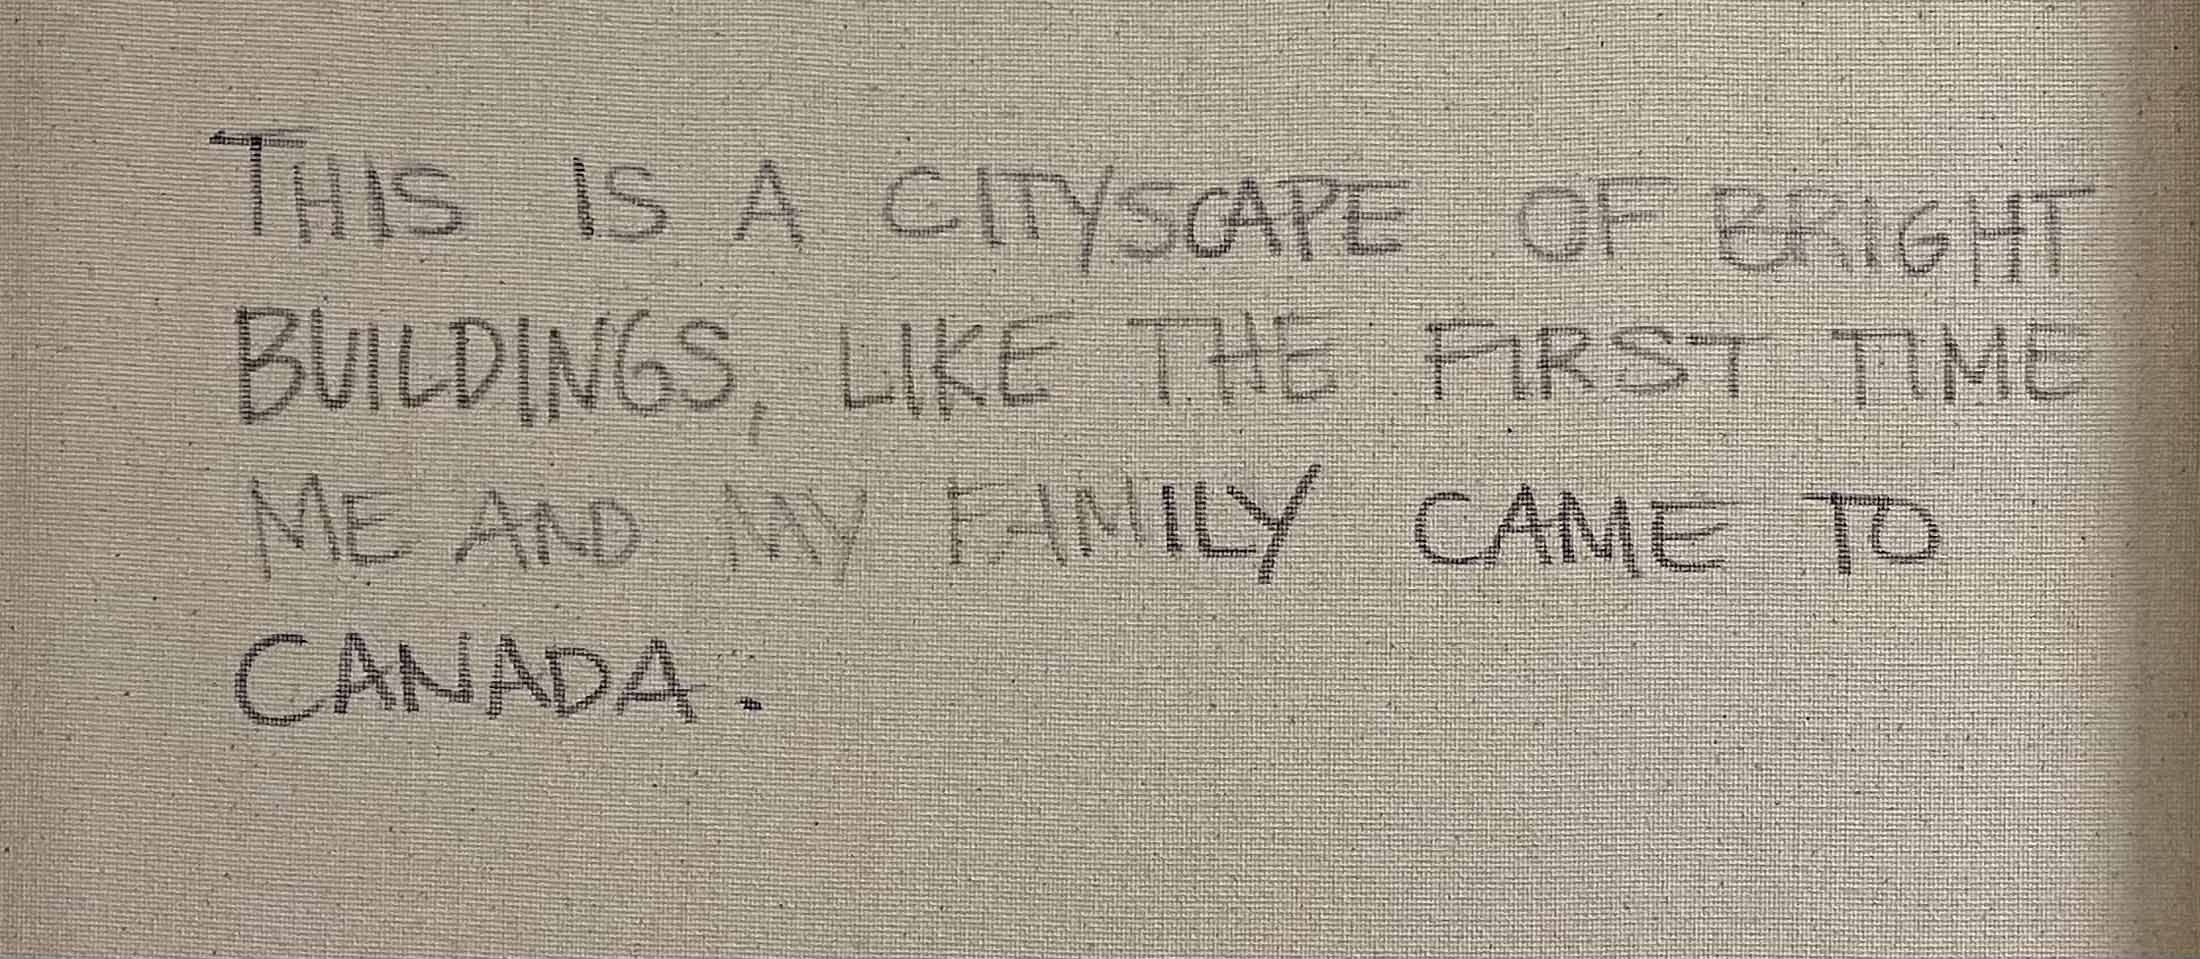 THIS IS A CITYSCAPE OF BRIGHT
BUILDINGS, LIKE THE FIRST TIME
ME AND MY FAMILY CAME TO
CANADA.